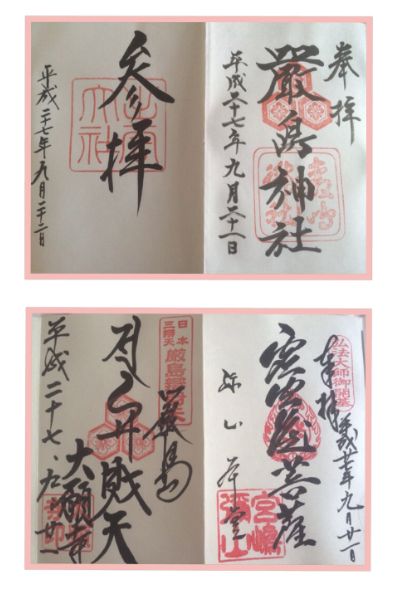 奉拝
嚴島神社
平成二十七年九月二十一日
参拝
出雲大社
平成二十七年九月二十二日
弘法大師御開基
奉拝
平成廿七年九月廿一日
虚空蔵菩薩
弥山本堂
宮嶋
彌山
日本
三辨天
厳島辨財天
嚴島
弁財天
大願寺
平成二十七、九、廿一